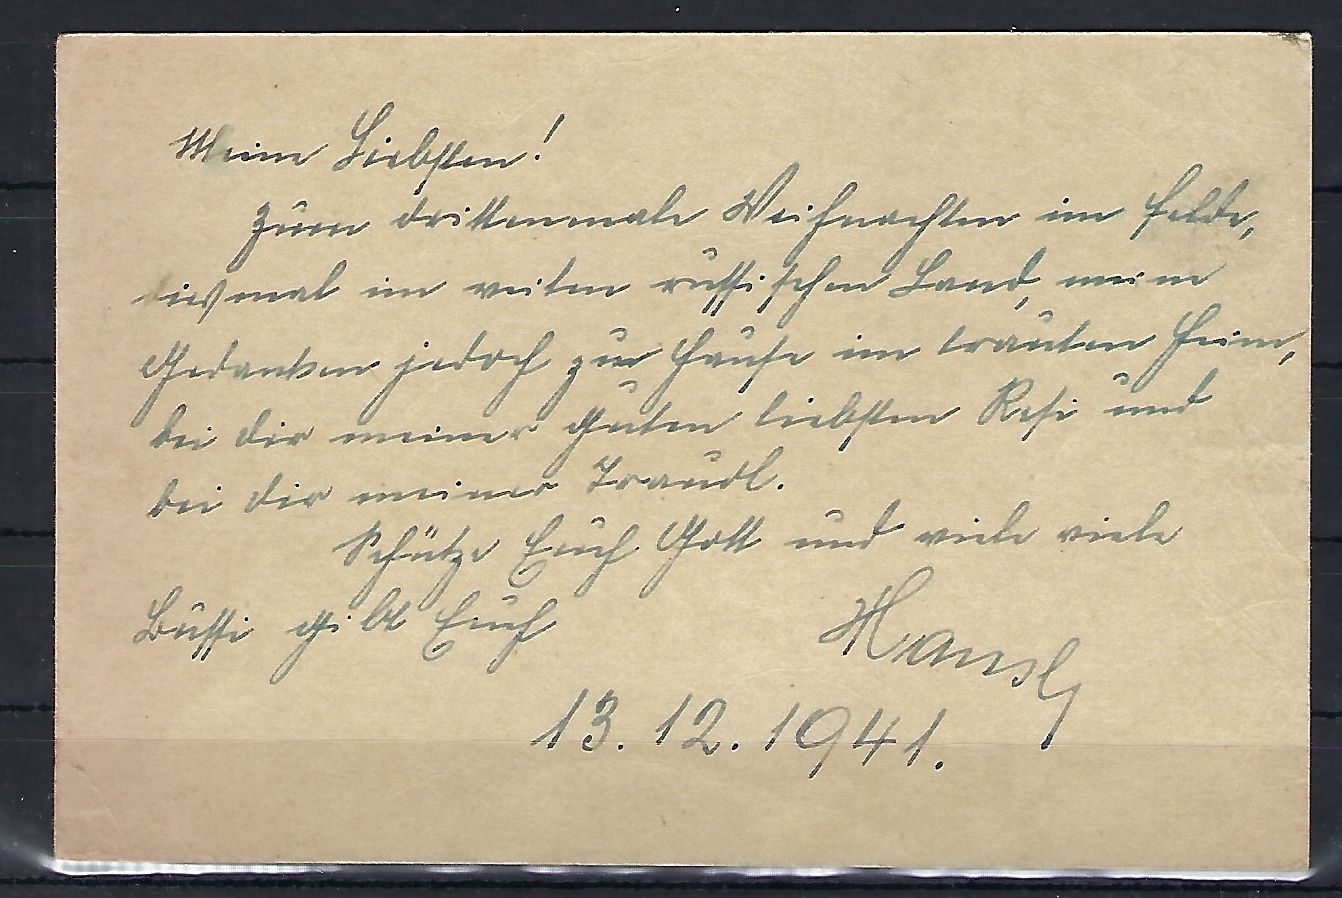 Meine Liebsten!
Zum drittenmale Weihnachten im Felde,
diesmal im weiten russischen Land, meine
Gedanken jedoch zur Hause im trauten Heim,
bei dir meiner guten liebsten Resi und
bei dir meiner Traudl.
Schütze Euch Gott und viele viele
Bussi gibt Euch
Hansl
13.12.1941.